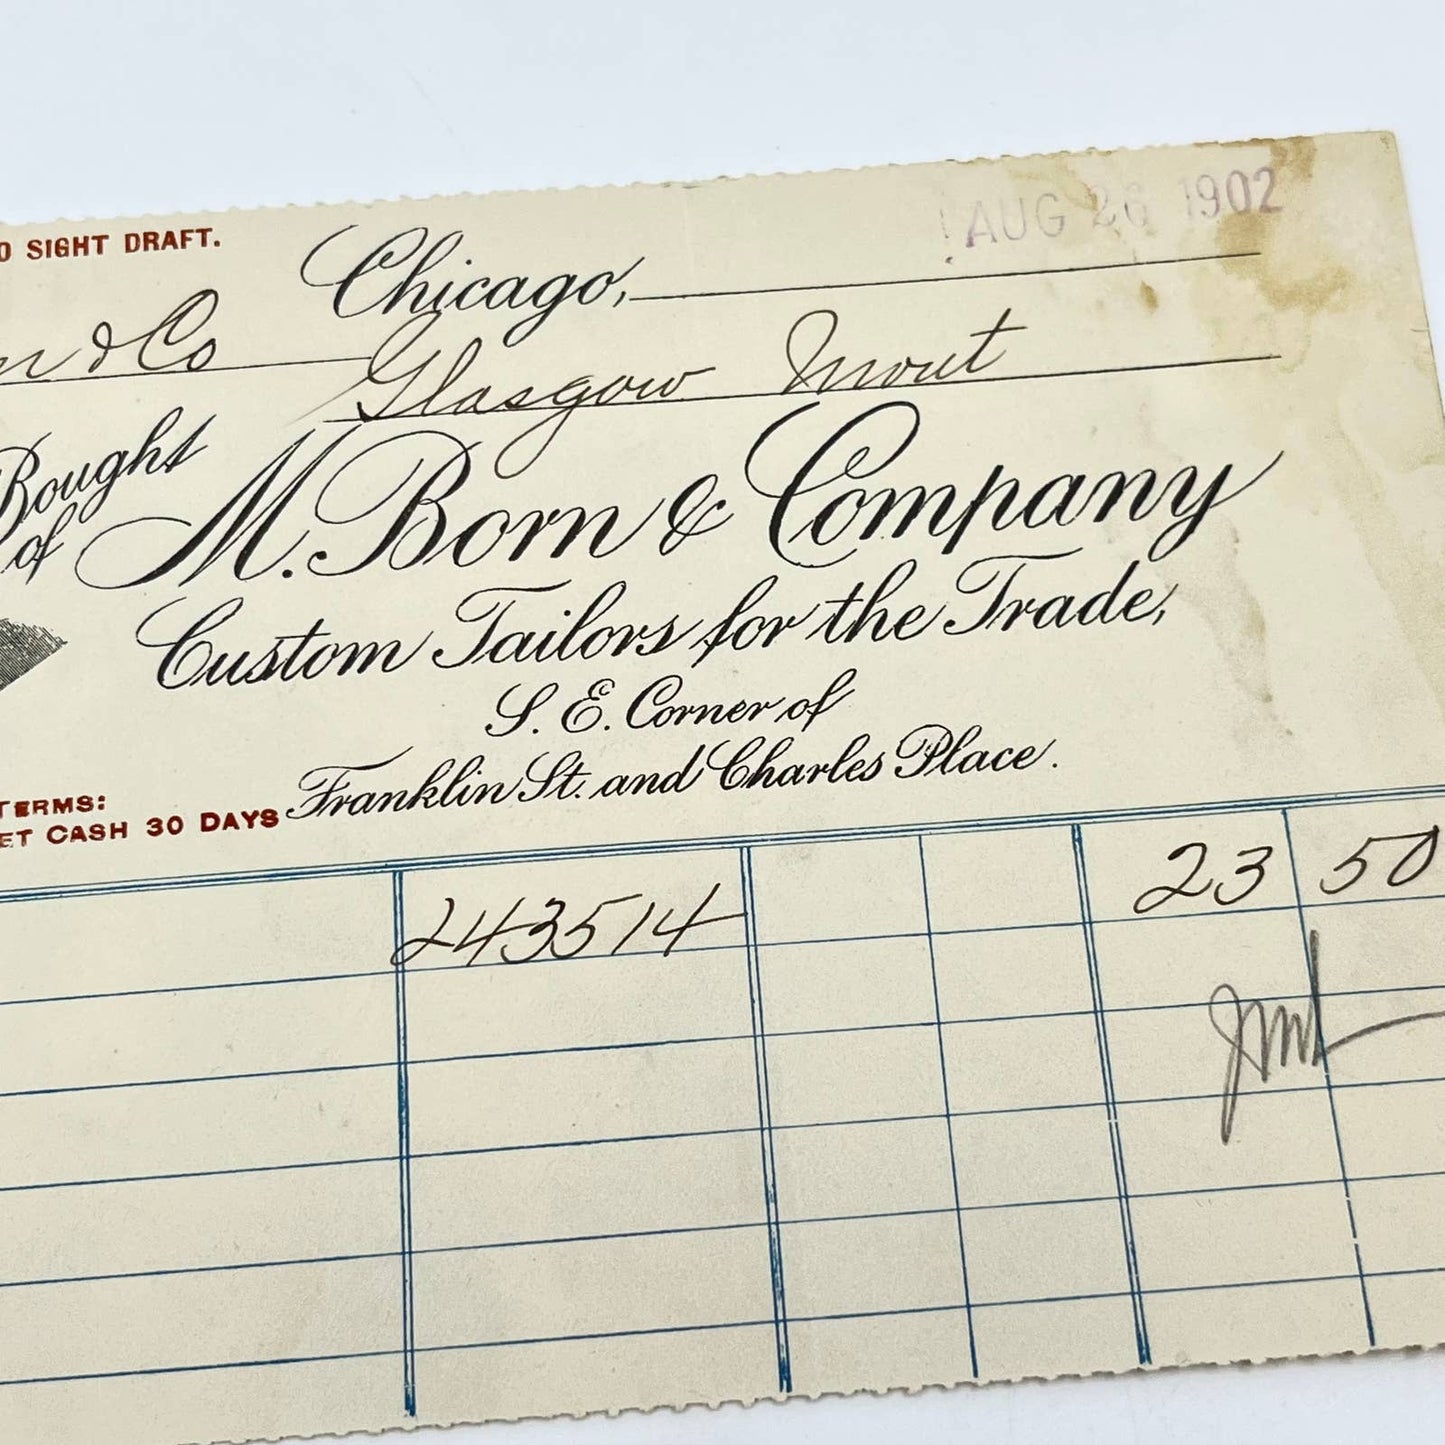 SIGHT DRAFT.
AUG 26 1902
Chicago,
& Co Glasgow Mont
Bought of
M. Born & Company
Custom Tailors for the Trade,
S. E. Corner of
Franklin St. and Charles Place.
TERMS:
CASH 30 DAYS
243514 23 50